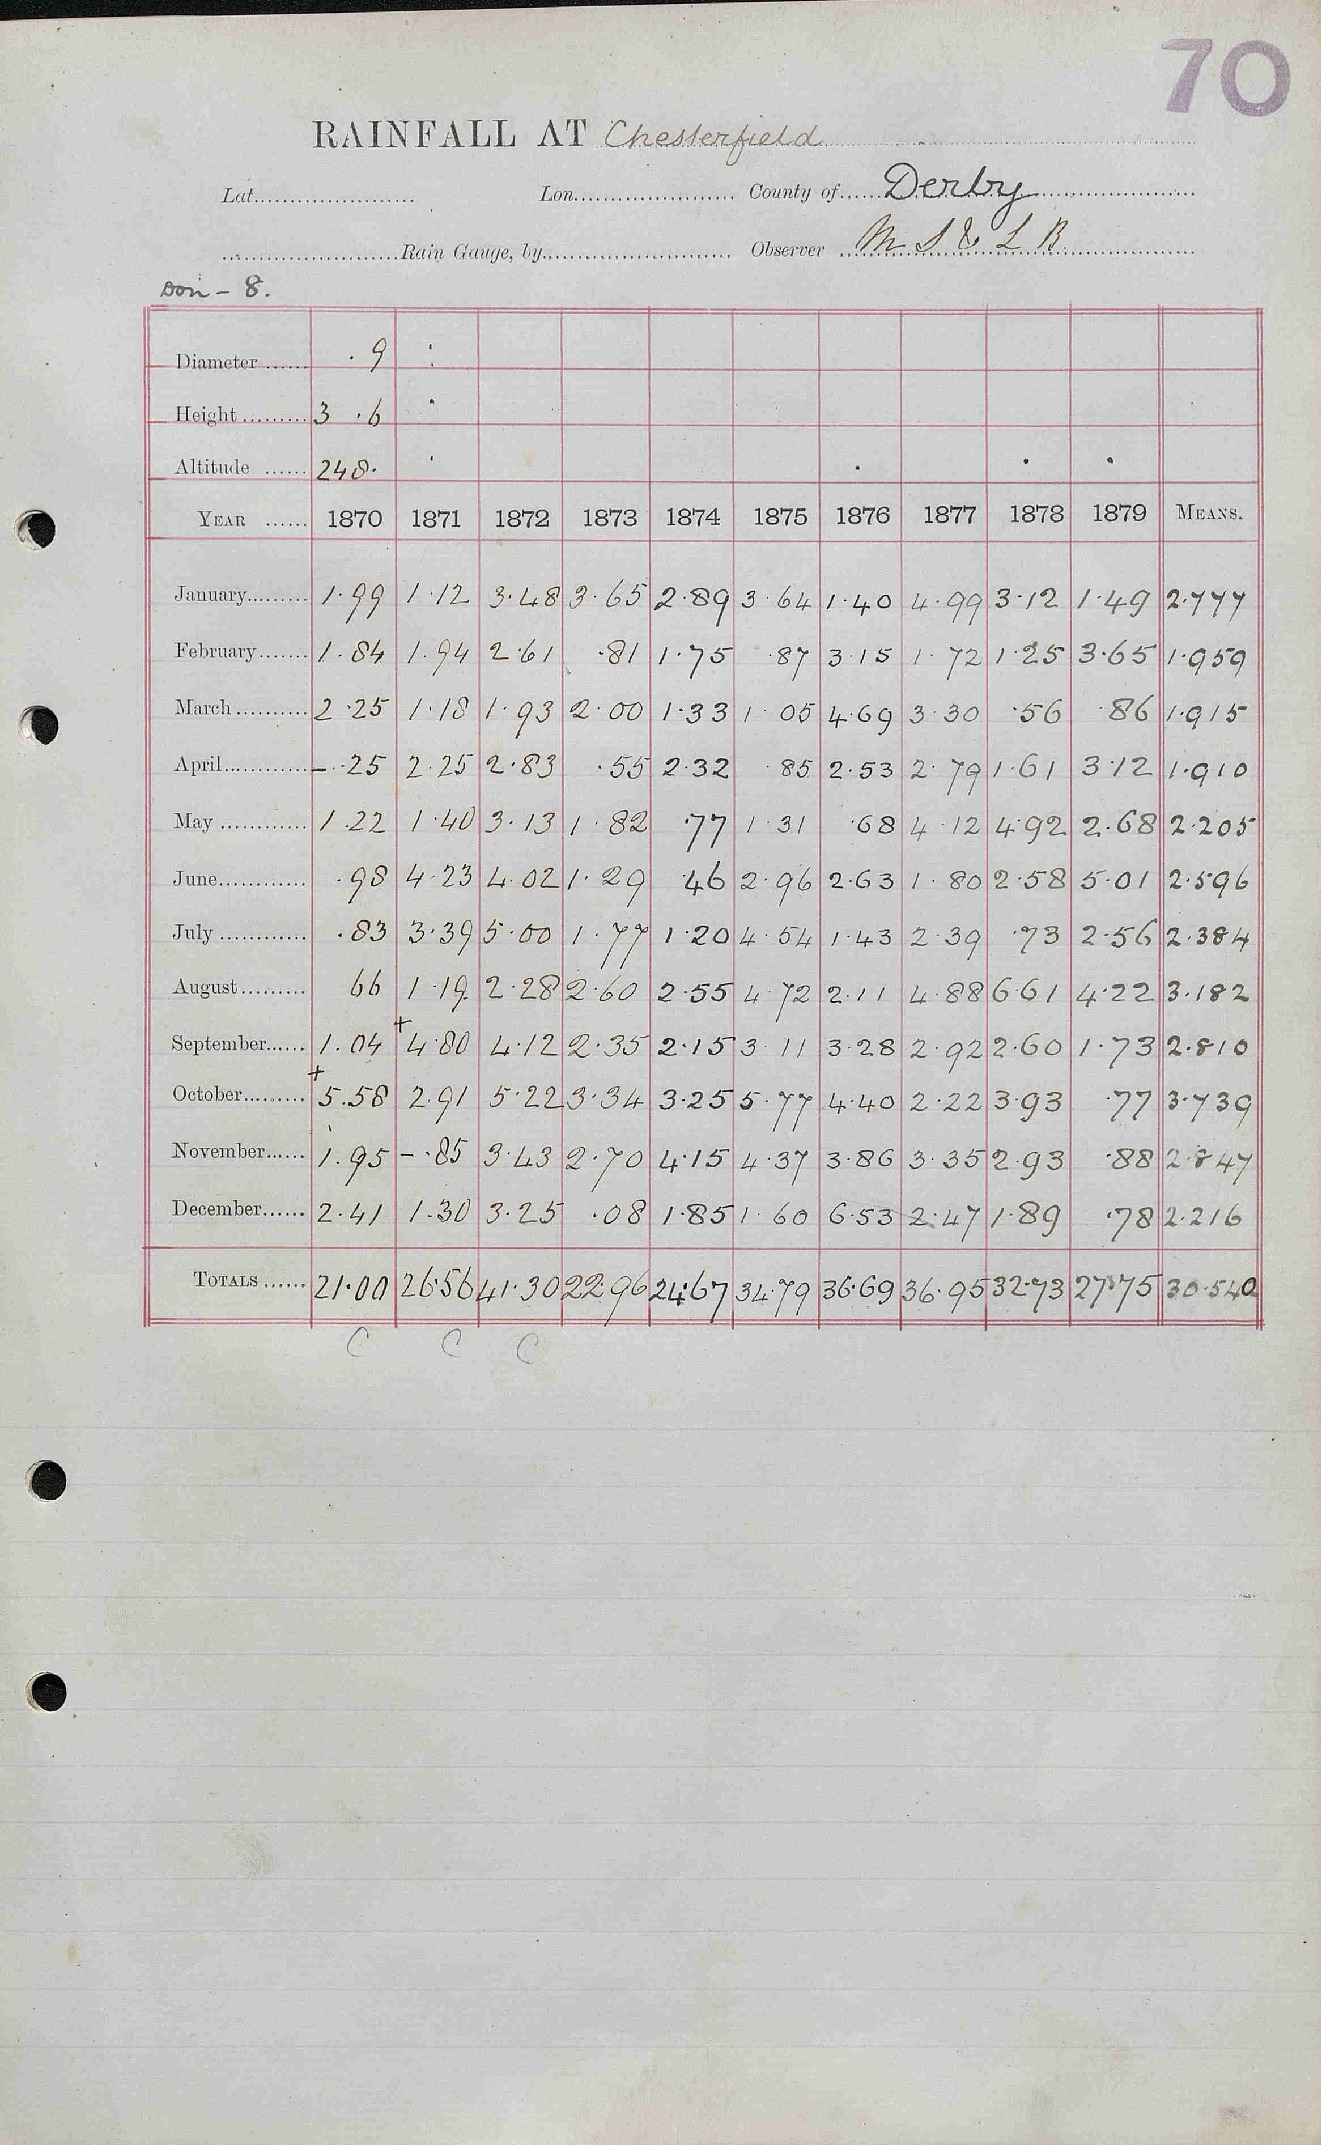 70
RAINFALL AT Chesterfield
Lat. Lon. County of Derby
Rain Gauge, by Observer M S & L R
Don - 8.
Diameter . 9
Height 3 . 6
Altitude 248.
YEAR 1870 1871 1872 1873 1874 1875 1876 1877 1878 1879 MEANS.
January 1.99 1.12 3.48 3.65 2.89 3.64 1.40 4.99 3.12 1.49 2.777
February 1.84 1.94 2.61 .81 1.75 .87 3.15 1.72 1.25 3.65 1.959
March 2.25 1.18 1.93 2.00 1.33 1.05 4.69 3.30 .56 .86 1.915
April - .25 2.25 2.83 .55 2.32 .85 2.53 2.79 1.61 3.12 1.910
May 1.22 1.40 3.13 1.82 .77 1.31 .68 4.12 4.92 2.68 2.205
June .98 4.23 4.02 1.29 .46 2.96 2.63 1.80 2.58 5.01 2.596
July .83 3.39 5.00 1.77 1.20 4.54 1.43 2.39 .73 2.56 2.384
August 66 1.19 2.28 2.60 2.55 4.72 2.11 4.88 6.61 4.22 3.182
September 1.04 + 4.80 4.12 2.35 2.15 3.11 3.28 2.92 2.60 1.73 2.810
October + 5.58 2.91 5.22 3.34 3.25 5.77 4.40 2.22 3.93 .77 3.739
November 1.95 - .85 3.43 2.70 4.15 4.37 3.86 3.35 2.93 .88 2.847
December 2.41 1.30 3.25 .08 1.85 1.60 6.53 2.47 1.89 .78 2.216
TOTALS 21.00 26.56 41.30 22.96 24.67 34.79 36.69 36.95 32.73 27.75 30.540
C C C